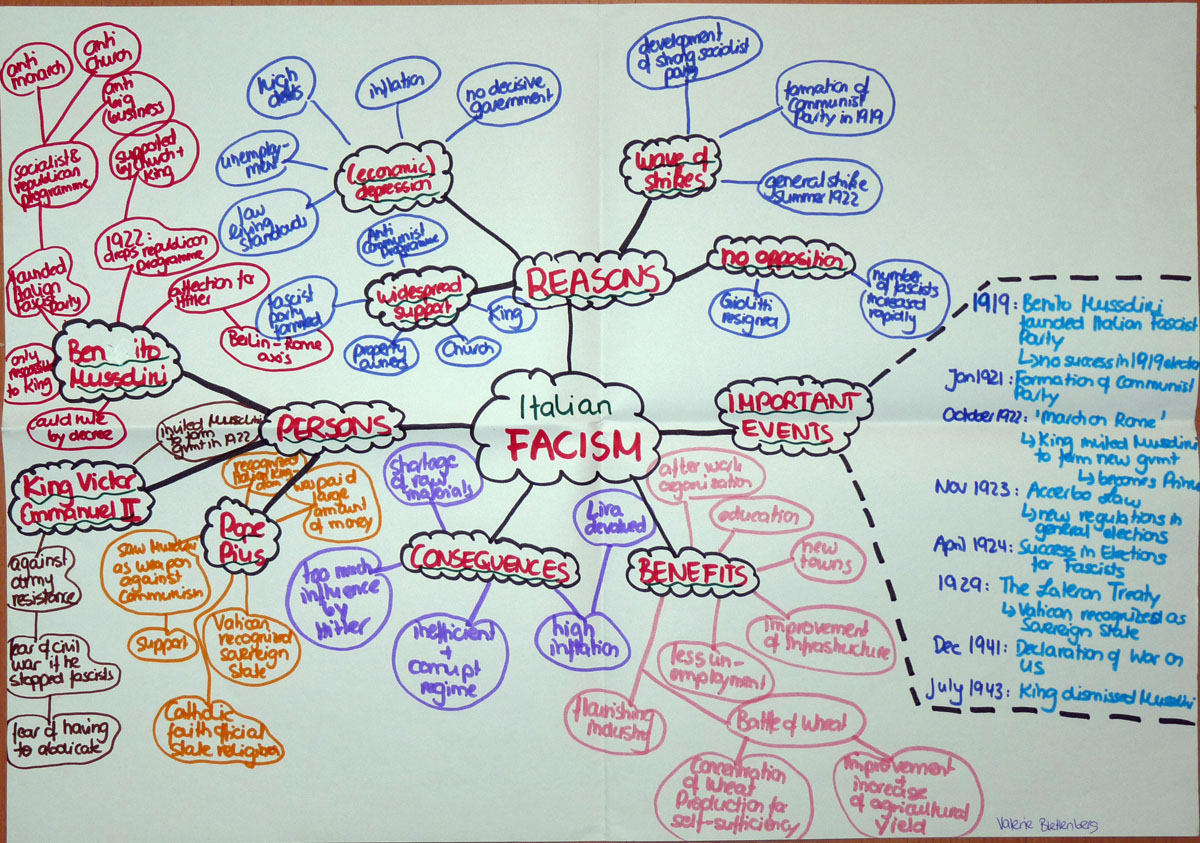 Italian
FACISM
REASONS
(economic)
depression
high
debts
inflation
no decisive
government
unemploy-
ment
low
living
standards
wave of
strikes
development
of strong socialist
party
formation of
Communist
Party in 1919
general strike
summer 1922
no opposition
Giolitti
resigned
number
of fascists
increased
rapidly
widespread
support
Anti
Communist
Programme
fascist
party
formed
property
owned
Church
King
IMPORTANT
EVENTS
1919: Benito Mussolini
founded Italian Fascist
Party
↳no success in 1919
Jan 1921: Formation of Communist
Party
October 1922: 'march on Rome'
↳ King invited Mussolini
to form new gvmt
↳ becomes
Nov 1923: Accerbo Law
↳new regulations in
general elections
April 1924: Success in Elections
for Fascists
1929: The Lateran Treaty
↳ Vatican recognized as
Sovereign State
Dec 1941: Declaration of War on
US
July 1943: King dismissed
PERSONS
Ben ito
Mussolini
anti
monarch
anti
Church
anti
big
business
socialist &
republican
programme
founded
Italian
Fascist Party
supported
by Church +
King
1922:
drops republican
programme
affection for
Hitler
Berlin-Rome
axis
only
to King
could rule
by decree
King Victor
Emmanuel II
invited Mussolini
to form
gvmt in 1922
against
army
resistance
fear of civil
war if he
stopped fascists
fear of having
to abdicate
Pope
Pius
recognized
was paid
large
amount
of money
saw Mussolini
as weapon
against
Communism
support
Vatican
recognized
sovereign
state
Catholic
faith official
State religion
CONSEQUENCES
shortage
of raw
materials
too much
influence
by
Hitler
inefficient
+
corrupt
regime
high
inflation
Lira
devalued
BENEFITS
after work
organization
education
new
towns
improvement
of Infrastructure
less un-
employment
flourishing
industry
Battle of Wheat
Concentration
of wheat
Production for
self-sufficiency
improvement
+
increase
of agricultural
yield
Valerie